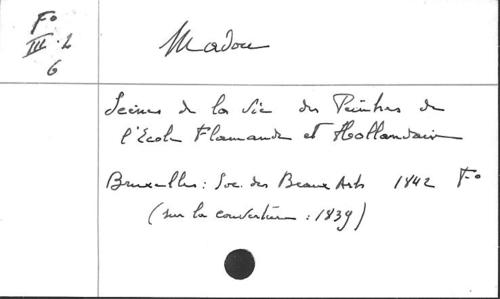 Fo
III. 2
6
Madou
Scènes de la Vie des Peintres de
l'Ecole Flamande et Hollandaise
Bruxelles: Soc. des Beaux Arts 1842 Fo
(sur la couverture : 1839)